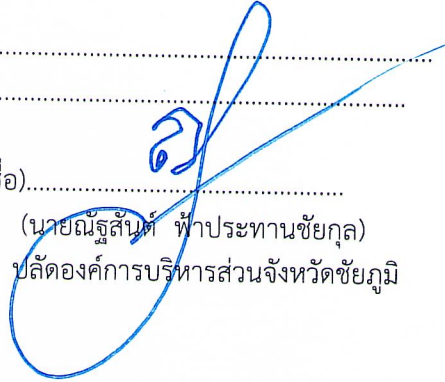 ..........................................................................
..........................................................................
ื่อ)......................................................
(นายณัฐสันต์ ฟ้าประทานชัยกุล)
ปลัดองค์การบริหารส่วนจังหวัดชัยภูมิ